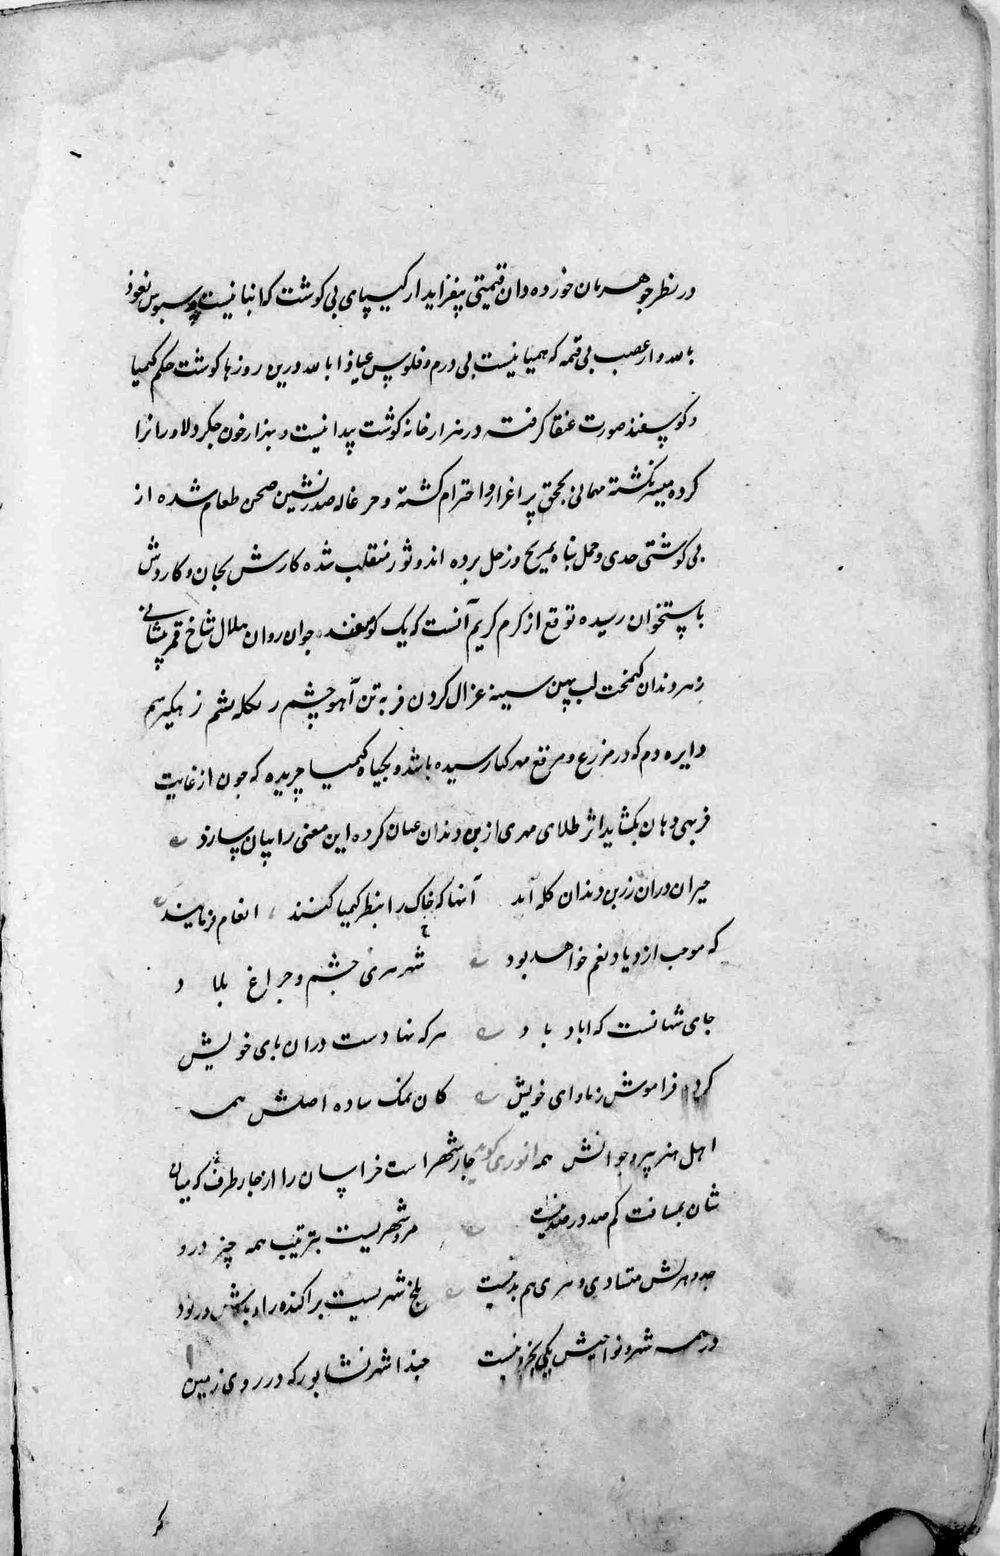 در نظر جوهریان خورده دان قیمتی بیفزاید از کیسهای بی کوشت که انبانیست پر سبوس نعوذ
بالله و از عصب بی قمه که همیانیست بی درم و فلوس عیاذا بالله درین روزها کوشت حکم کیمیا
و کوسفند صورت عنقا کرفته در هزار خانه کوشت پیدا نیست و بهزار خون جکر دلاورانرا
کرده میسر نکشته مهمانی بحق پر اعزاز و احترام کشته و مرغاله صدرنشین صحن طعام شده از
بی کوشتی جدی و حمل پناه بمریخ و زحل برده اند و ثور منقلب شده کارش بجان و کاردش
باستخوان رسیده توقع از کرم کریم آنست که یک کوسفند جوان روان هلال شاخ قمر پیشانی
دندان لب پهن سینه غزال کردن فربه تن آهو چشم
دایره دم که در مزرع و مرتع رسیده باشد و بجای کیمیا چریده که چون از غایت
فربهی دهان بکشاید اثر طلای مهری از بن دندان عیان کرده این معنی را بیان سازد
حیران دران زرین دندان کله آید آنها که خاک را بنظر کیمیا کنند ، انعام فرمایند
که موجب ازدیاد نعم خواهد بود شهر هری چشم و چراغ بلاد
جای شهانست که اباد باد هر که نهادست دران پای خویش
کرد فراموش ز ماوای خویش کان نمک ساده اصلش همه
اهل هنر پیر و جوانش همه انوری کوید چار شهر است خراسان را از چار طرف که میان
شان بمسافت کم صد در صد نیست مرو شهریست بترتیب همه چیز درو
جد و هزلش متساوی و هری هم بد نیست بلخ شهریست براکنده در نود
در همه شهر و نواحیش یکی بخرد نیست حبذا شهر نشابور که در روی زمین
کر